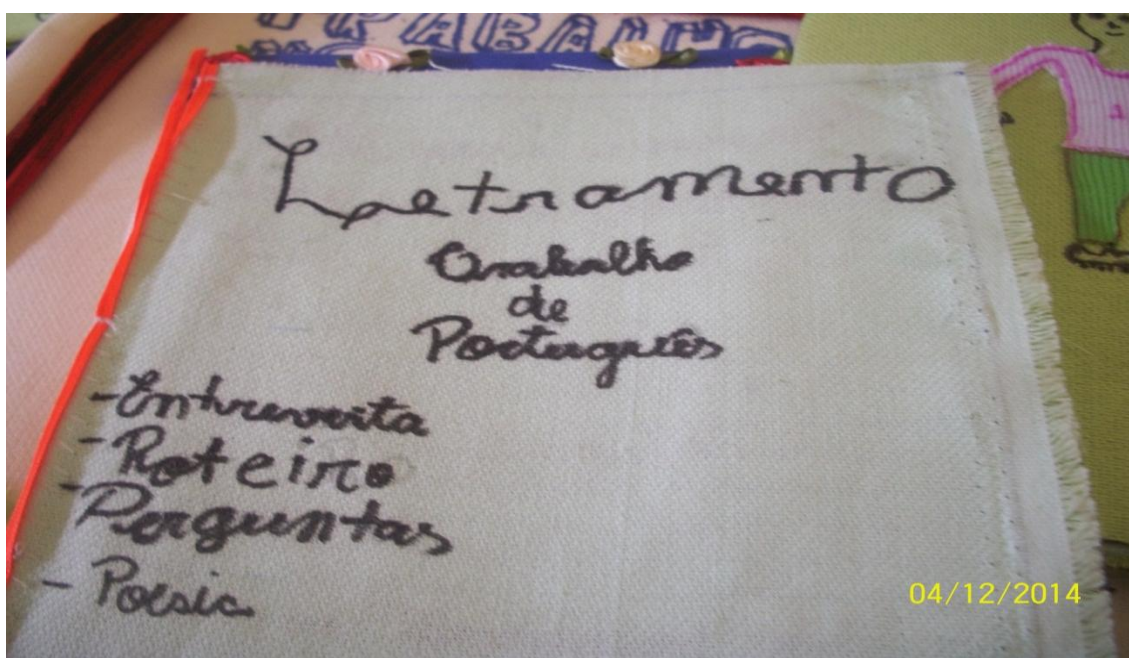 TRABALHO
Letramento
Trabalho
de
Português
- Entrevista
- Roteiro
- Perguntas
- Poesia
04/12/2014